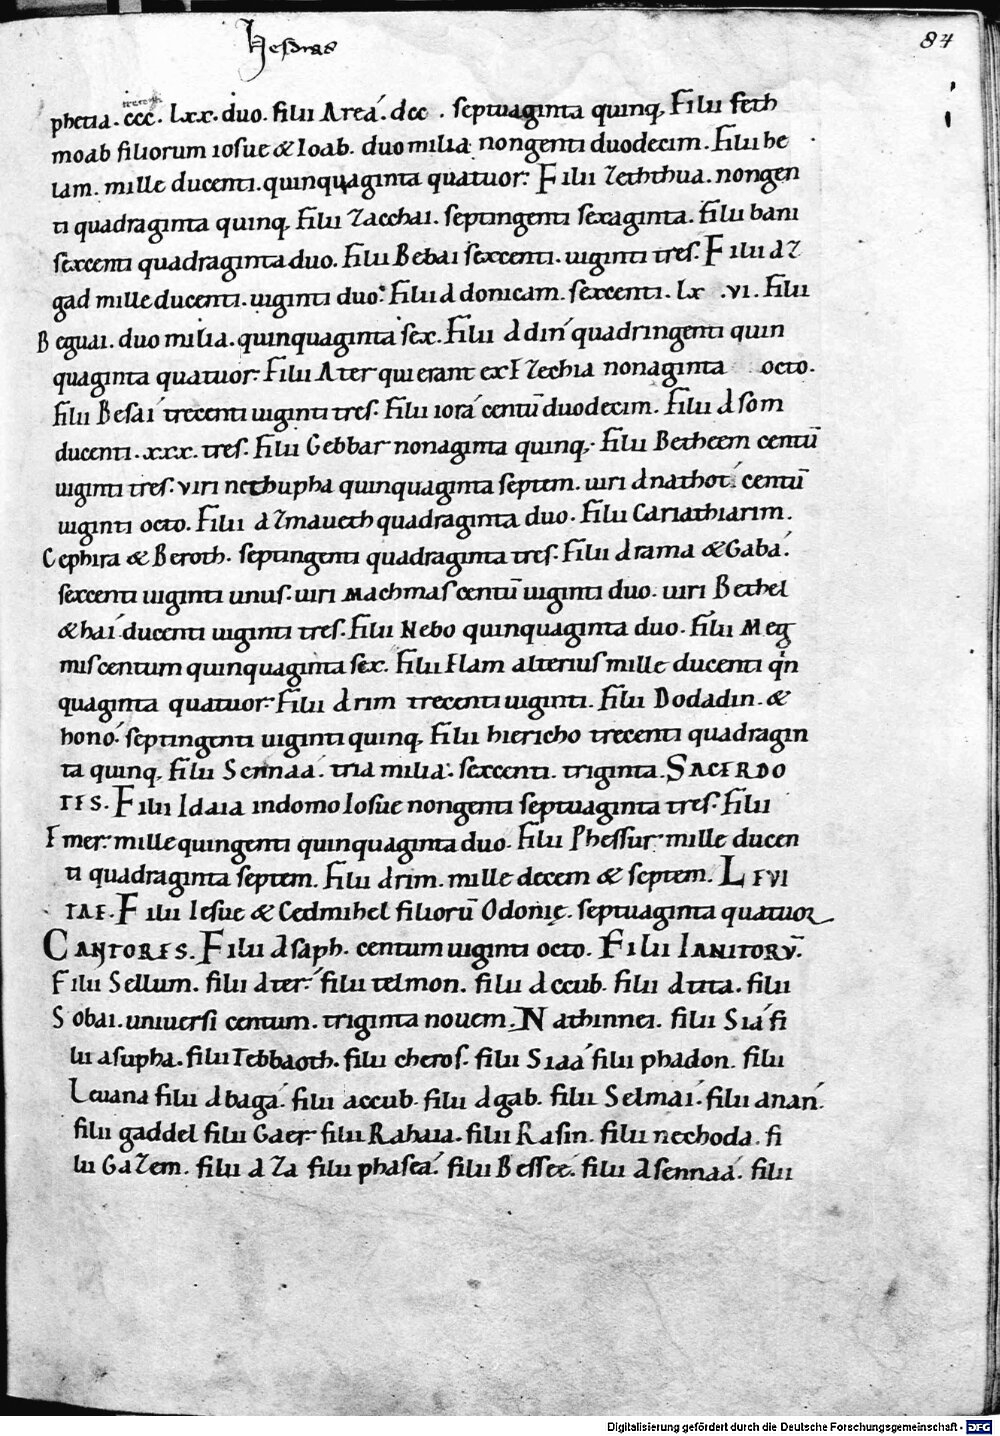 Hesdras
84
trecenti
phetia . ccc . lxx . duo . filii Area . dcc . septuaginta quinq, Filii feth
moab filiorum iosue & Ioab . duo milia nongenti duodecim . Filii he
lam . mille ducenti . quinquaginta quatuor . Filii Zeththua . nongen
ti quadraginta quinq, Filii Zacchai . septingenti sexaginta . filii bani
sexcenti quadraginta duo . Filii Bebai sexcenti . uiginti tres . Filii aZ
gad mille ducenti . uiginti duo . Filii adonicam . sexcenti . lx . vi . Filii
Beguai . duo milia . quinquaginta sex . Filii addin quadringenti quin
quaginta quatuor . Filii Ater qui erant ex EZechia nonaginta octo .
filii Besai trecenti uiginti tres . Filii iora centū duodecim . Filii asom
ducenti . xxx . tres . Filii Gebbar nonaginta quinq, . Filii Betheem centū
uiginti tres . viri nethupha quinquaginta septem . uiri anathot . centū
uiginti octo . Filii aZmaueth quadraginta duo . Filii Cariathiarim .
Cephira & Beroth . septingenti quadraginta tres . Filii arama & Gaba .
sexcenti uiginti unus . uiri Machmas centū uiginti duo . uiri Bethel
& hai ducenti uiginti tres . Filii Nebo quinquaginta duo . filii Meg
mis centum quinquaginta sex . Filii Elam alterius mille ducenti qin
quaginta quatuor . Filii arim trecenti uiginti . Filii Dodadin . &
hono . septingenti uiginti quinq, Filii hiericho trecenti quadragin
ta quinq, filii Sennaa . tria milia . sexcenti . triginta . SACERDO
TES . Filii Idaia in domo Iosue nongenti septuaginta tres . filii
Emer . mille quingenti quinquaginta duo . Filii Phessur mille ducen
ti quadraginta septem . Filii arim . mille decem & septem . LEVI
TAE . Filii Iesue & Cedmihel filiorū Odonię . septuaginta quatuor
CANTORES . Filii asaph . centum uiginti octo . Filii IANITORV̄ .
Filii Sellum . filii ater . filii telmon . filii accub . filii atita . filii
Sobai . uniuersi centum . triginta nouem . Nathinnei . filii Sia fi
lii asupha . filii Tebbaoth . filii cheros . filii Siaa filii phadon . filii
Leuana filii abaga . filii accub . filii agab . filii Selmai . filii anan .
filii gaddel filii Gaer . filii Rahaia . filii Rasin . filii nechoda . fi
lii GaZem . filii aZa filii phasea . filii Besseé . filii asennaa . filii
Digitalisierung gefördert durch die Deutsche Forschungsgemeinschaft - DFG